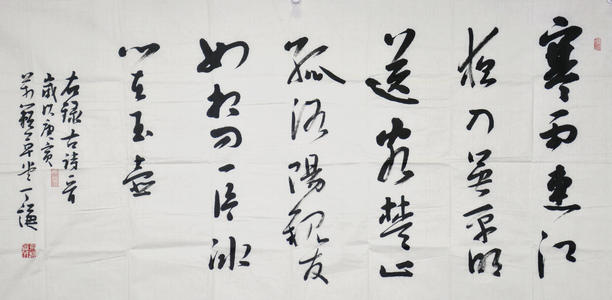 寒雨連江
夜入吳平明
送客楚山
孤洛陽親友
如相問一片冰
心在玉壺
右録古詩一首
歲次庚寅